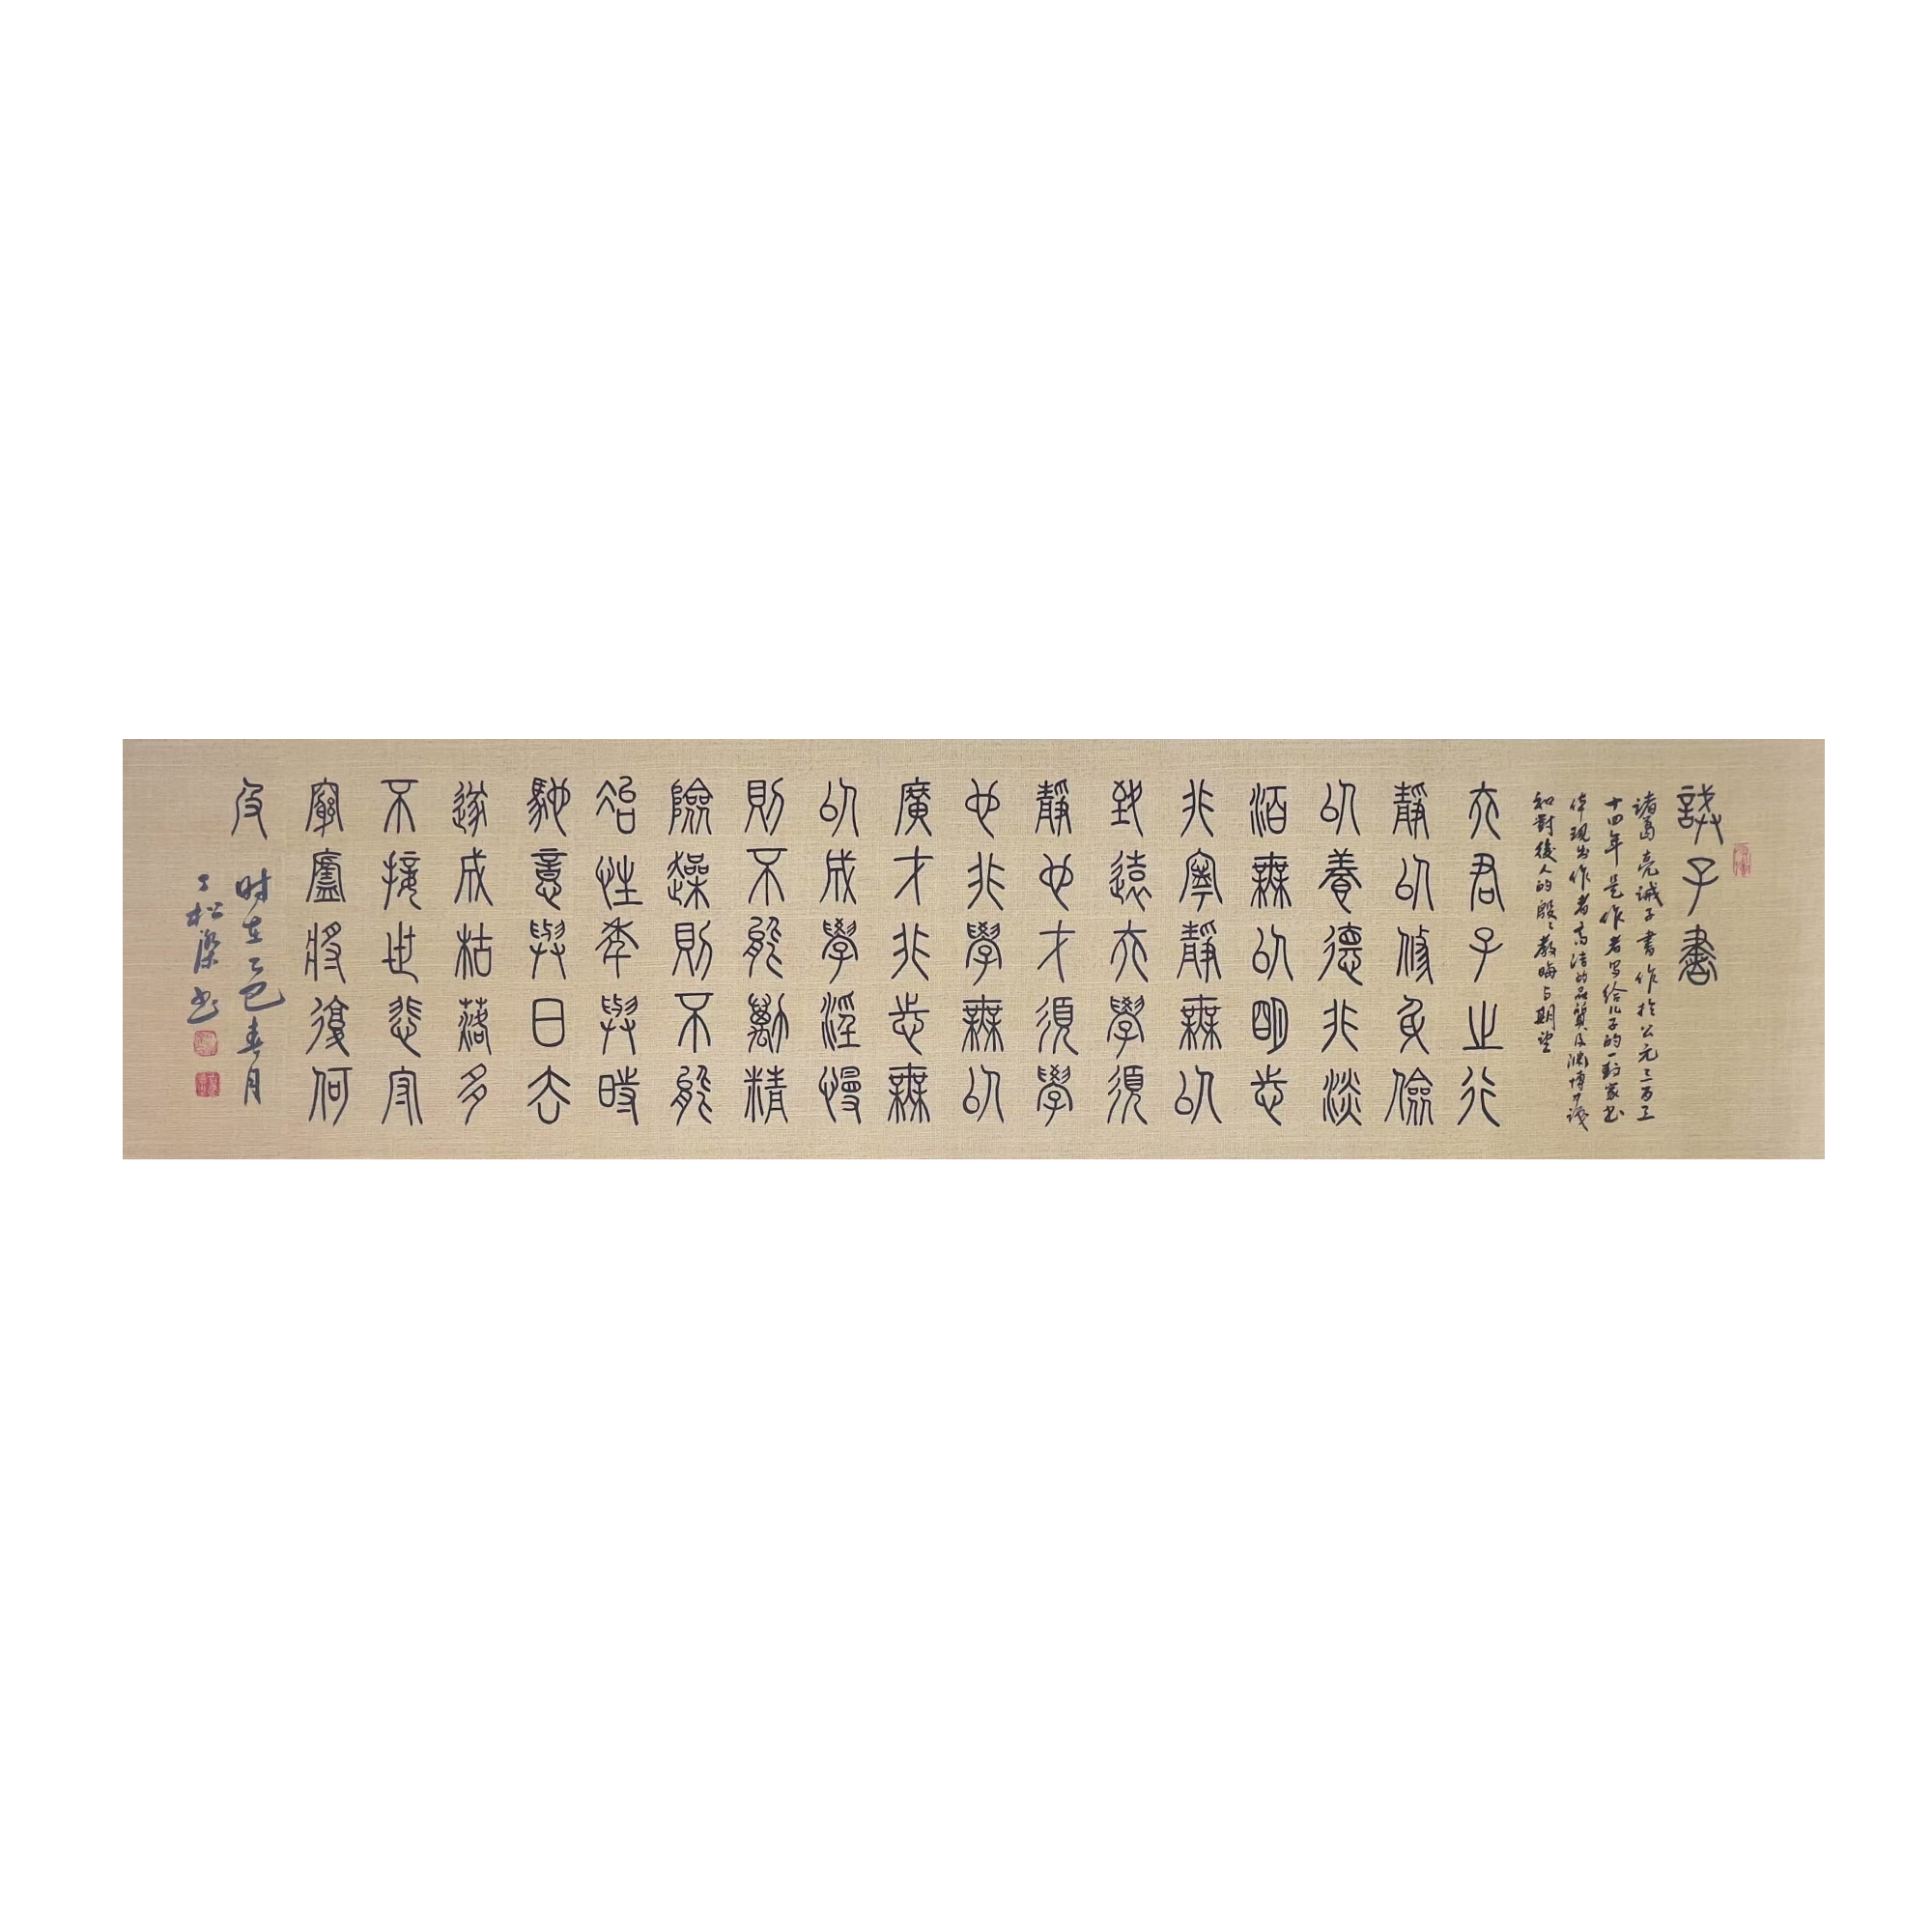 誡子書
諸葛亮誡子書作於公元二百三
十四年是作者写给儿子的一封家书
体现出作者高洁的品質及渊博才識
和對後人的殷殷教晦与期望
夫君子之行
靜以修身儉
以養德非淡
泊無以明志
非寧靜無以
致遠夫學須
靜也才須學
也非學無以
廣才非志無
以成學淫慢
則不能勵精
險躁則不能
治性年與時
馳意與日去
遂成枯落多
不接世悲守
窮廬將復何
及
时在乙巳春月
丁松 书